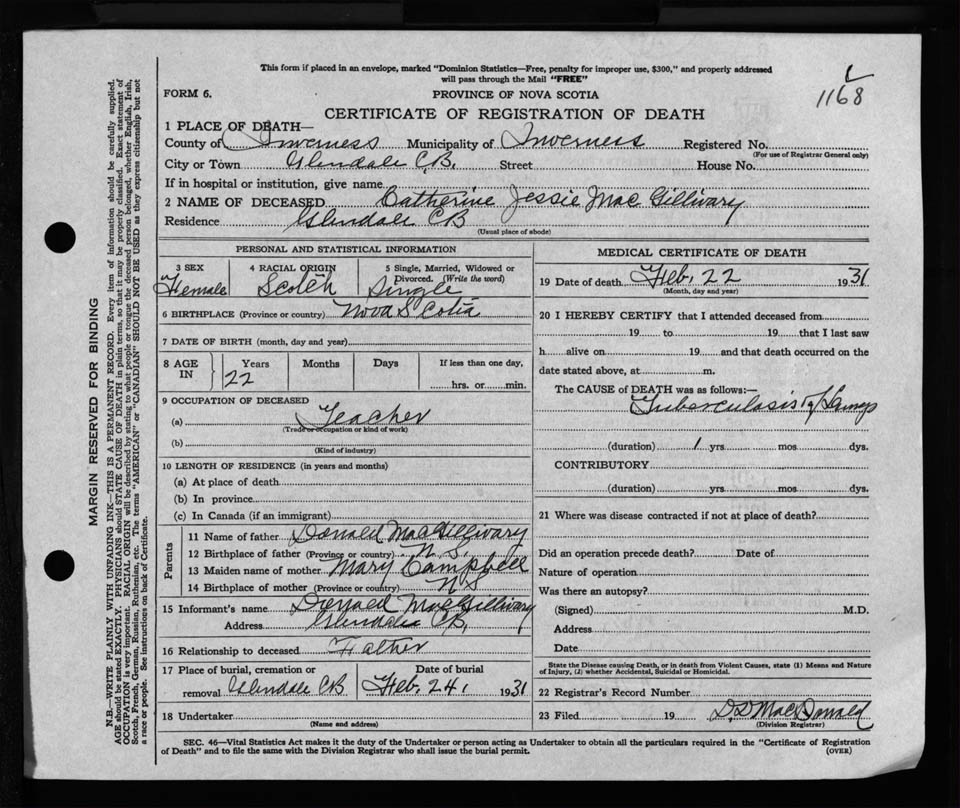 This form if placed in an envelope, marked "Dominion Statistics—Free, penalty for improper use, $300," and properly addressed
will pass through the Mail "FREE"
1168
FORM 6. PROVINCE OF NOVA SCOTIA
CERTIFICATE OF REGISTRATION OF DEATH
1 PLACE OF DEATH—
County of Inverness Municipality of Inverness Registered No.
(For use of Registrar General only)
City or Town Glendale C.B. Street House No.
If in hospital or institution, give name
2 NAME OF DECEASED Catherine Jessie Mac Gillivary
Residence Glendale CB
(Usual place of abode)
PERSONAL AND STATISTICAL INFORMATION
3 SEX 4 RACIAL ORIGIN 5 Single, Married, Widowed or
Divorced. (Write the word)
Female Scotch Single
6 BIRTHPLACE (Province or country) Nova Scotia
7 DATE OF BIRTH (month, day and year)
8 AGE IN Years Months Days If less than one day,
22 hrs. or min.
9 OCCUPATION OF DECEASED
(a) Teacher
(Trade or occupation or kind of work)
(b)
(Kind of industry)
10 LENGTH OF RESIDENCE (in years and months)
(a) At place of death
(b) In province
(c) In Canada (if an immigrant)
Parents
11 Name of father Donald MacGillivary
12 Birthplace of father (Province or country) N.S.
13 Maiden name of mother Mary Campbell
14 Birthplace of mother (Province or country) N S
15 Informant's name Donald MacGillivary
Address Glendale CB,
16 Relationship to deceased Father
17 Place of burial, cremation or Date of burial
removal Glendale CB Feb. 24, 1931
18 Undertaker
(Name and address)
MEDICAL CERTIFICATE OF DEATH
19 Date of death Feb. 22 1931
(Month, day and year)
20 I HEREBY CERTIFY that I attended deceased from
19 to 19 that I last saw
h alive on 19 and that death occurred on the
date stated above, at m.
The CAUSE of DEATH was as follows:—
Tuberculosis of Lungs
(duration) 1 yrs. mos. dys.
CONTRIBUTORY
(duration) yrs. mos. dys.
21 Where was disease contracted if not at place of death?
Did an operation precede death? Date of
Nature of operation
Was there an autopsy?
(Signed) M.D.
Address
Date
State the Disease causing Death, or in death from Violent Causes, state (1) Means and Nature
of Injury, (2) whether Accidental, Suicidal or Homicidal.
22 Registrar's Record Number
23 Filed 19 D.D. MacDonald
(Division Registrar)
SEC. 46—Vital Statistics Act makes it the duty of the Undertaker or person acting as Undertaker to obtain all the particulars required in the "Certificate of Registration
of Death" and to file the same with the Division Registrar who shall issue the burial permit. (OVER)
MARGIN RESERVED FOR BINDING
N.B.—WRITE PLAINLY WITH UNFADING INK—THIS IS A PERMANENT RECORD. Every item of information should be carefully supplied.
AGE should be stated EXACTLY. PHYSICIANS should STATE CAUSE OF DEATH in plain terms, so that it may be properly classified. Exact statement of
OCCUPATION is very important. RACIAL ORIGIN will be described by stating to what people or tongue the deceased person belonged, whether English, Irish,
Scotch, French, German, Russian, Ruthenian, etc. The terms "AMERICAN" or "CANADIAN" SHOULD NOT BE USED as they express citizenship but not
a race or people. See instructions on back of Certificate.